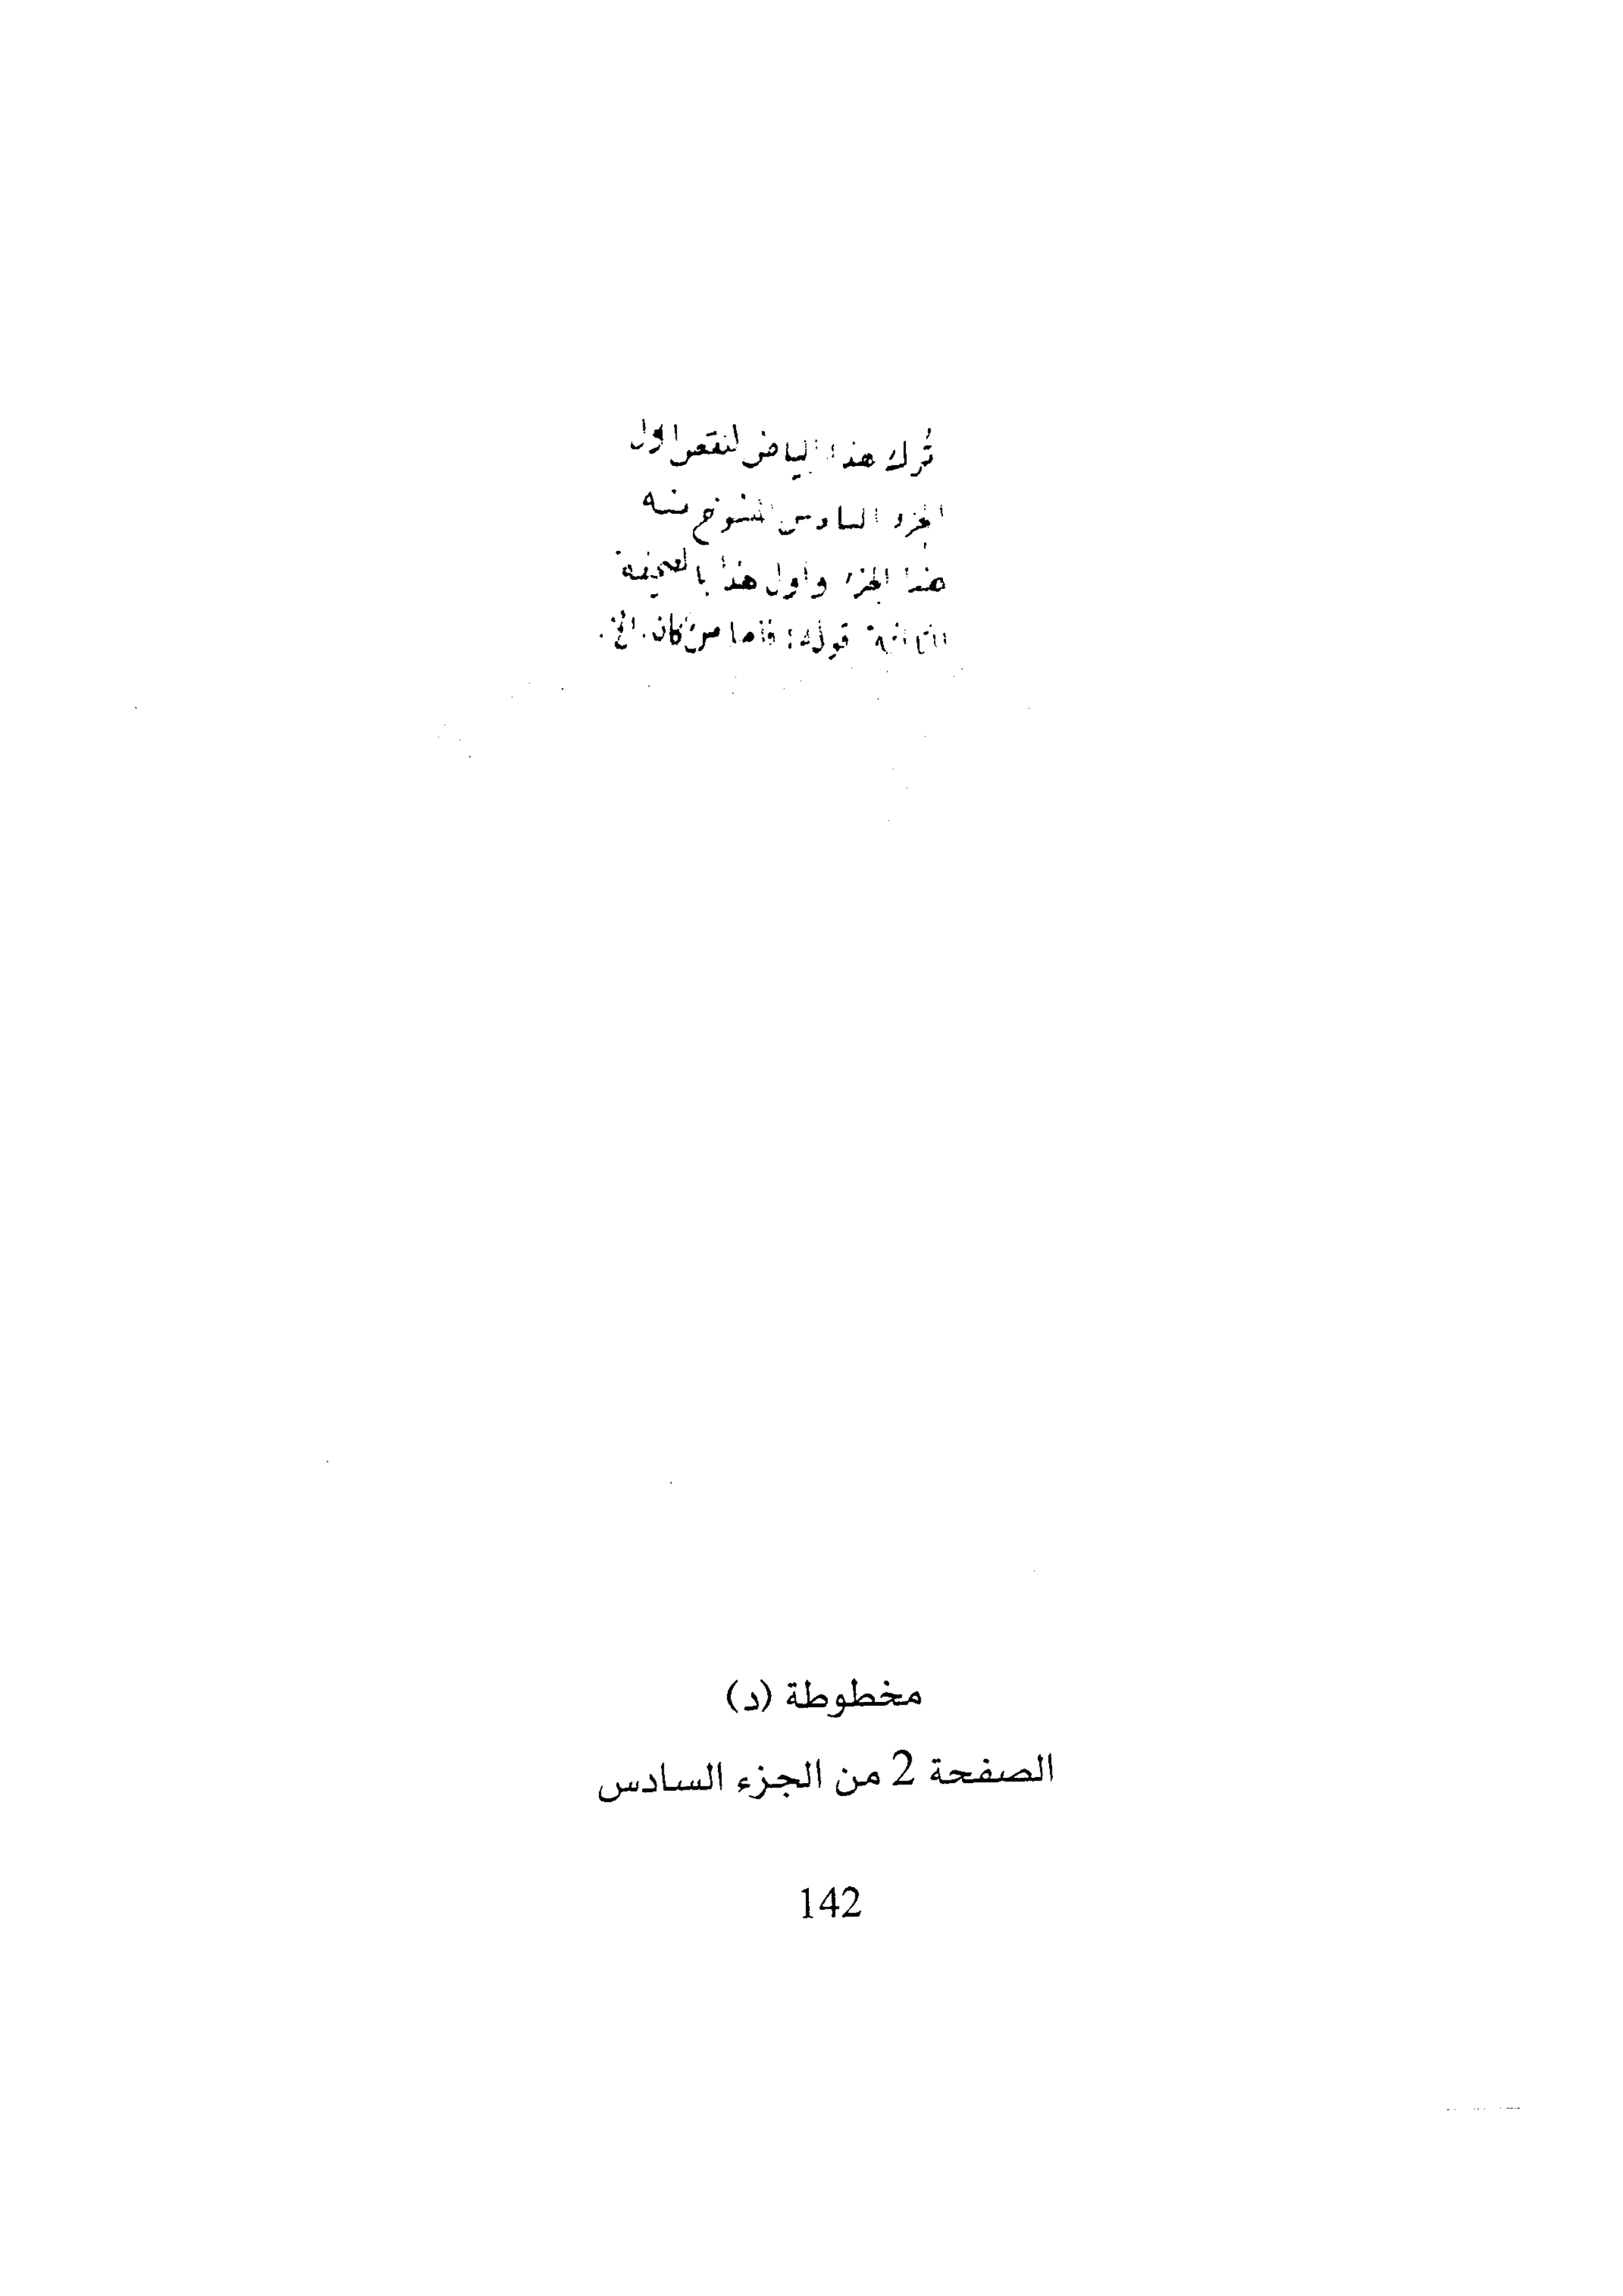 تُرك هذا البياض لنقص اول
الجزء السادس المنسوخ منه
هذا الجزء واول هذا بالصحيفة
الثانية قوله: فأما من كان. الخ.
مخطوطة (د)
الصفحة 2 من الجزء السادس
142